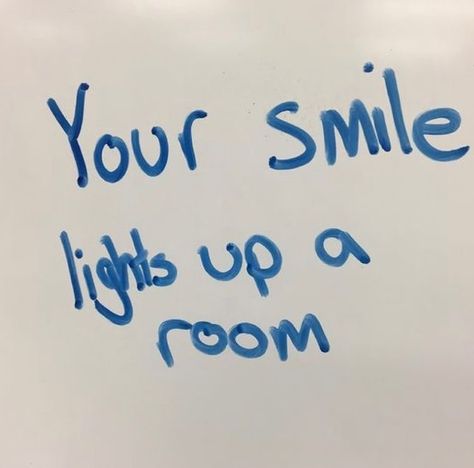 Your smile
lights up a
room